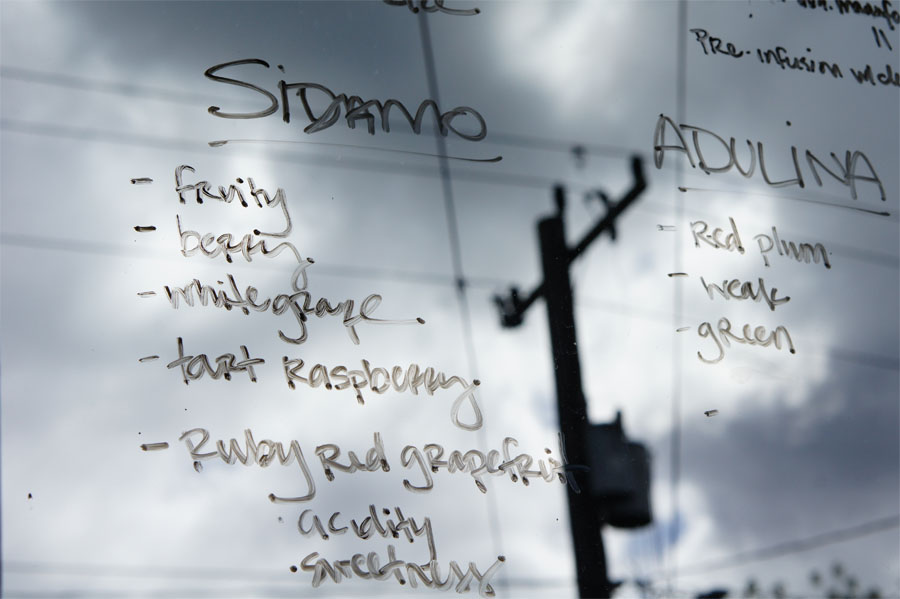 SIDAMO
- fruity
- berry
- white grape
- tart Raspberry
- Ruby Red grapefruit
· acidity
· sweetness
Pre-infusion
ADULINA
- Red plum
- weak
- green
-